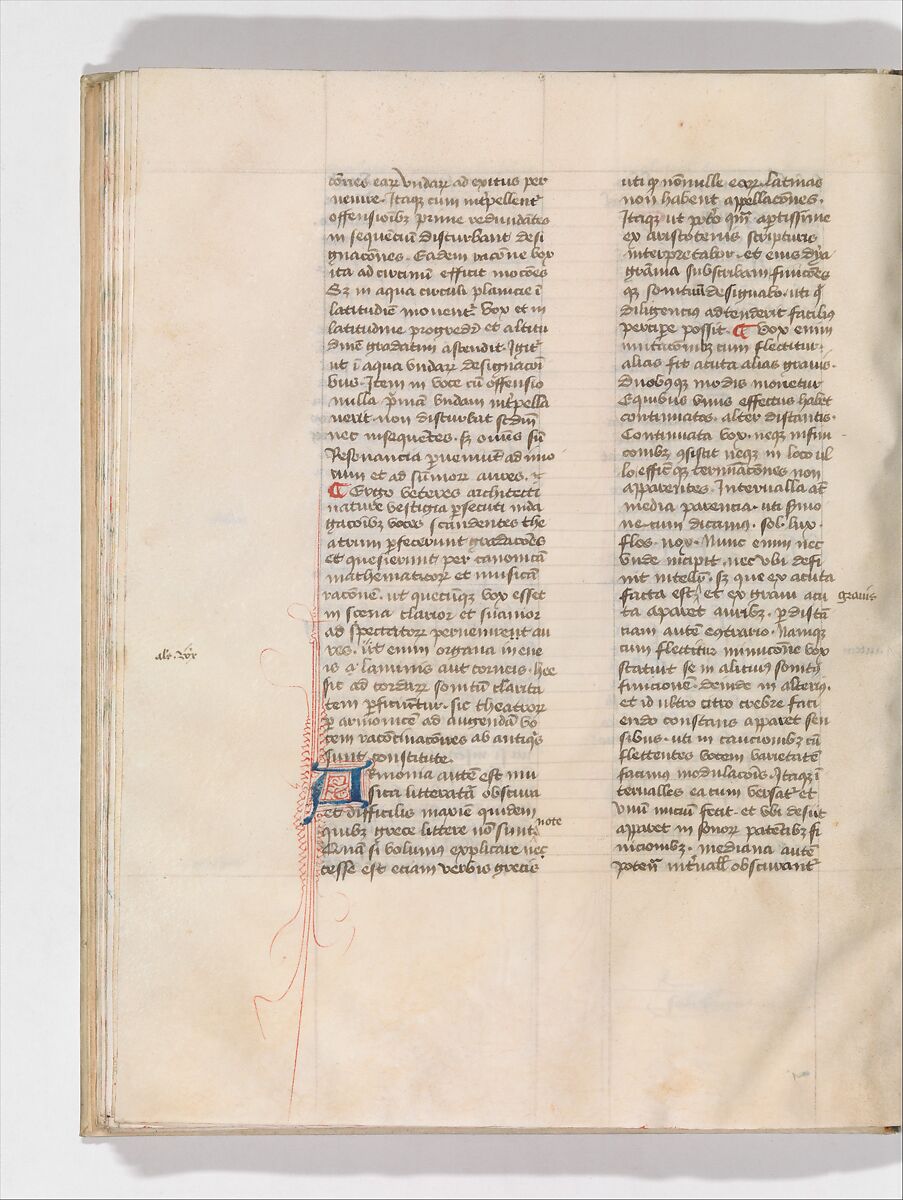 cōnes earꝝ vndarꝝ ad exitus per
uenire. Itaqꝫ cum int̄pellent᷑
offensioībꝫ prime redundātes
in sequēciū disturbant desi
gnacōnes. Eadem racōne vox
ita ad circinū efficit mocōēs
Sꝫ in aqua circuli planicie ī
latitudiēm mouent᷑. Vox et in
latitudine progredī et altitu
dinē gradatim ascendit. Igit᷑
ut ī aqua vndarꝝ designacōī
bus. Item in voce cū offensio
nulla p̄mā vndam int̄pella
uerit. non disturbat scd̄m
nec insequētes. sꝫ om̄es sū
Resonancia perueniūt ad imo
rum et ad sūmorū aures.
¶ Ergo veteres architecti
nature vestigia ꝑsecuti inda
gacōībꝫ voces scandentes the
atrum ꝑfecerunt gradacōēs
et quesierunt per canonicā
mathematicorꝝ et musicā
racōnē. ut quecūqꝫ vox esset
in scena clarior et suauior
ad spectatorꝝ perueniret au
res. Uti enim organa in ene
is a laminis aut corneis. hee
sic ad cordarꝝ sonitū clarita
tem ꝑficiūtur. sic theatrorꝝ
ꝑ armonicē ad augendā vo
cem racōcinacōnes ab antiqͥs
sunt constitute.
Armonia autē est mu
sica litteratā obscura
et difficilis maxīe quidem
quibꝫ grece littere non sunt note
Quā si volumꝰ explicare nec
cesse est eciam verbis grecis
uti qꝫ nōnulle eorꝝ latinas
non habent appellacōnes.
Itaqꝫ ut potero qm̄ aptissime
ex aristotenis scripturis
interpretabor. et eius dya
grāma subscribam finicōēs
qꝫ sonituū designabo. uti qͥ
diligencius adtenderit facilius
percipe possit. ¶ Vox enim
mutacōnibꝫ cum flectitur.
alias fit acuta alias grauis.
Duobusqꝫ modis mouetur
E quibus vnus effectus habet
continuatos. alter distantis.
Continuata vox. neqꝫ in fini
cōnibꝫ ꝯsistit neqꝫ in loco ul
lo. efficitqꝫ terminacōnes non
apparentes. Interualla at̄
media parencia. uti sermo
ne cum dicamus. sol. lux.
flos. nox. Nunc enim nec
vnde incipit. nec vbi desi
nit intellit᷑. Sꝫ que ex acuta
facta est. et ex graui acu grauis
ta aparet auribꝫ. ꝑ distā
ciam autē ꝯtrario. Namqꝫ
cum flectitur in mutacōne vox
statuit se in alicuius sonitus
funcionē. deinde in alterius.
et id ultro citro crebre faci
endo constans apparet sen
sibus. uti in cancionibꝫ cū
flectentes vocem varietatē
facimus modulacōis. Itaqꝫ ī
teruallis ea cum versat᷑ et
vnū inicium fecit. et vbi desiit
apparet in sonorꝝ patentibꝫ fi
nicionibꝫ. mediana autē
patent̄ int̄uall' obscurant᷑